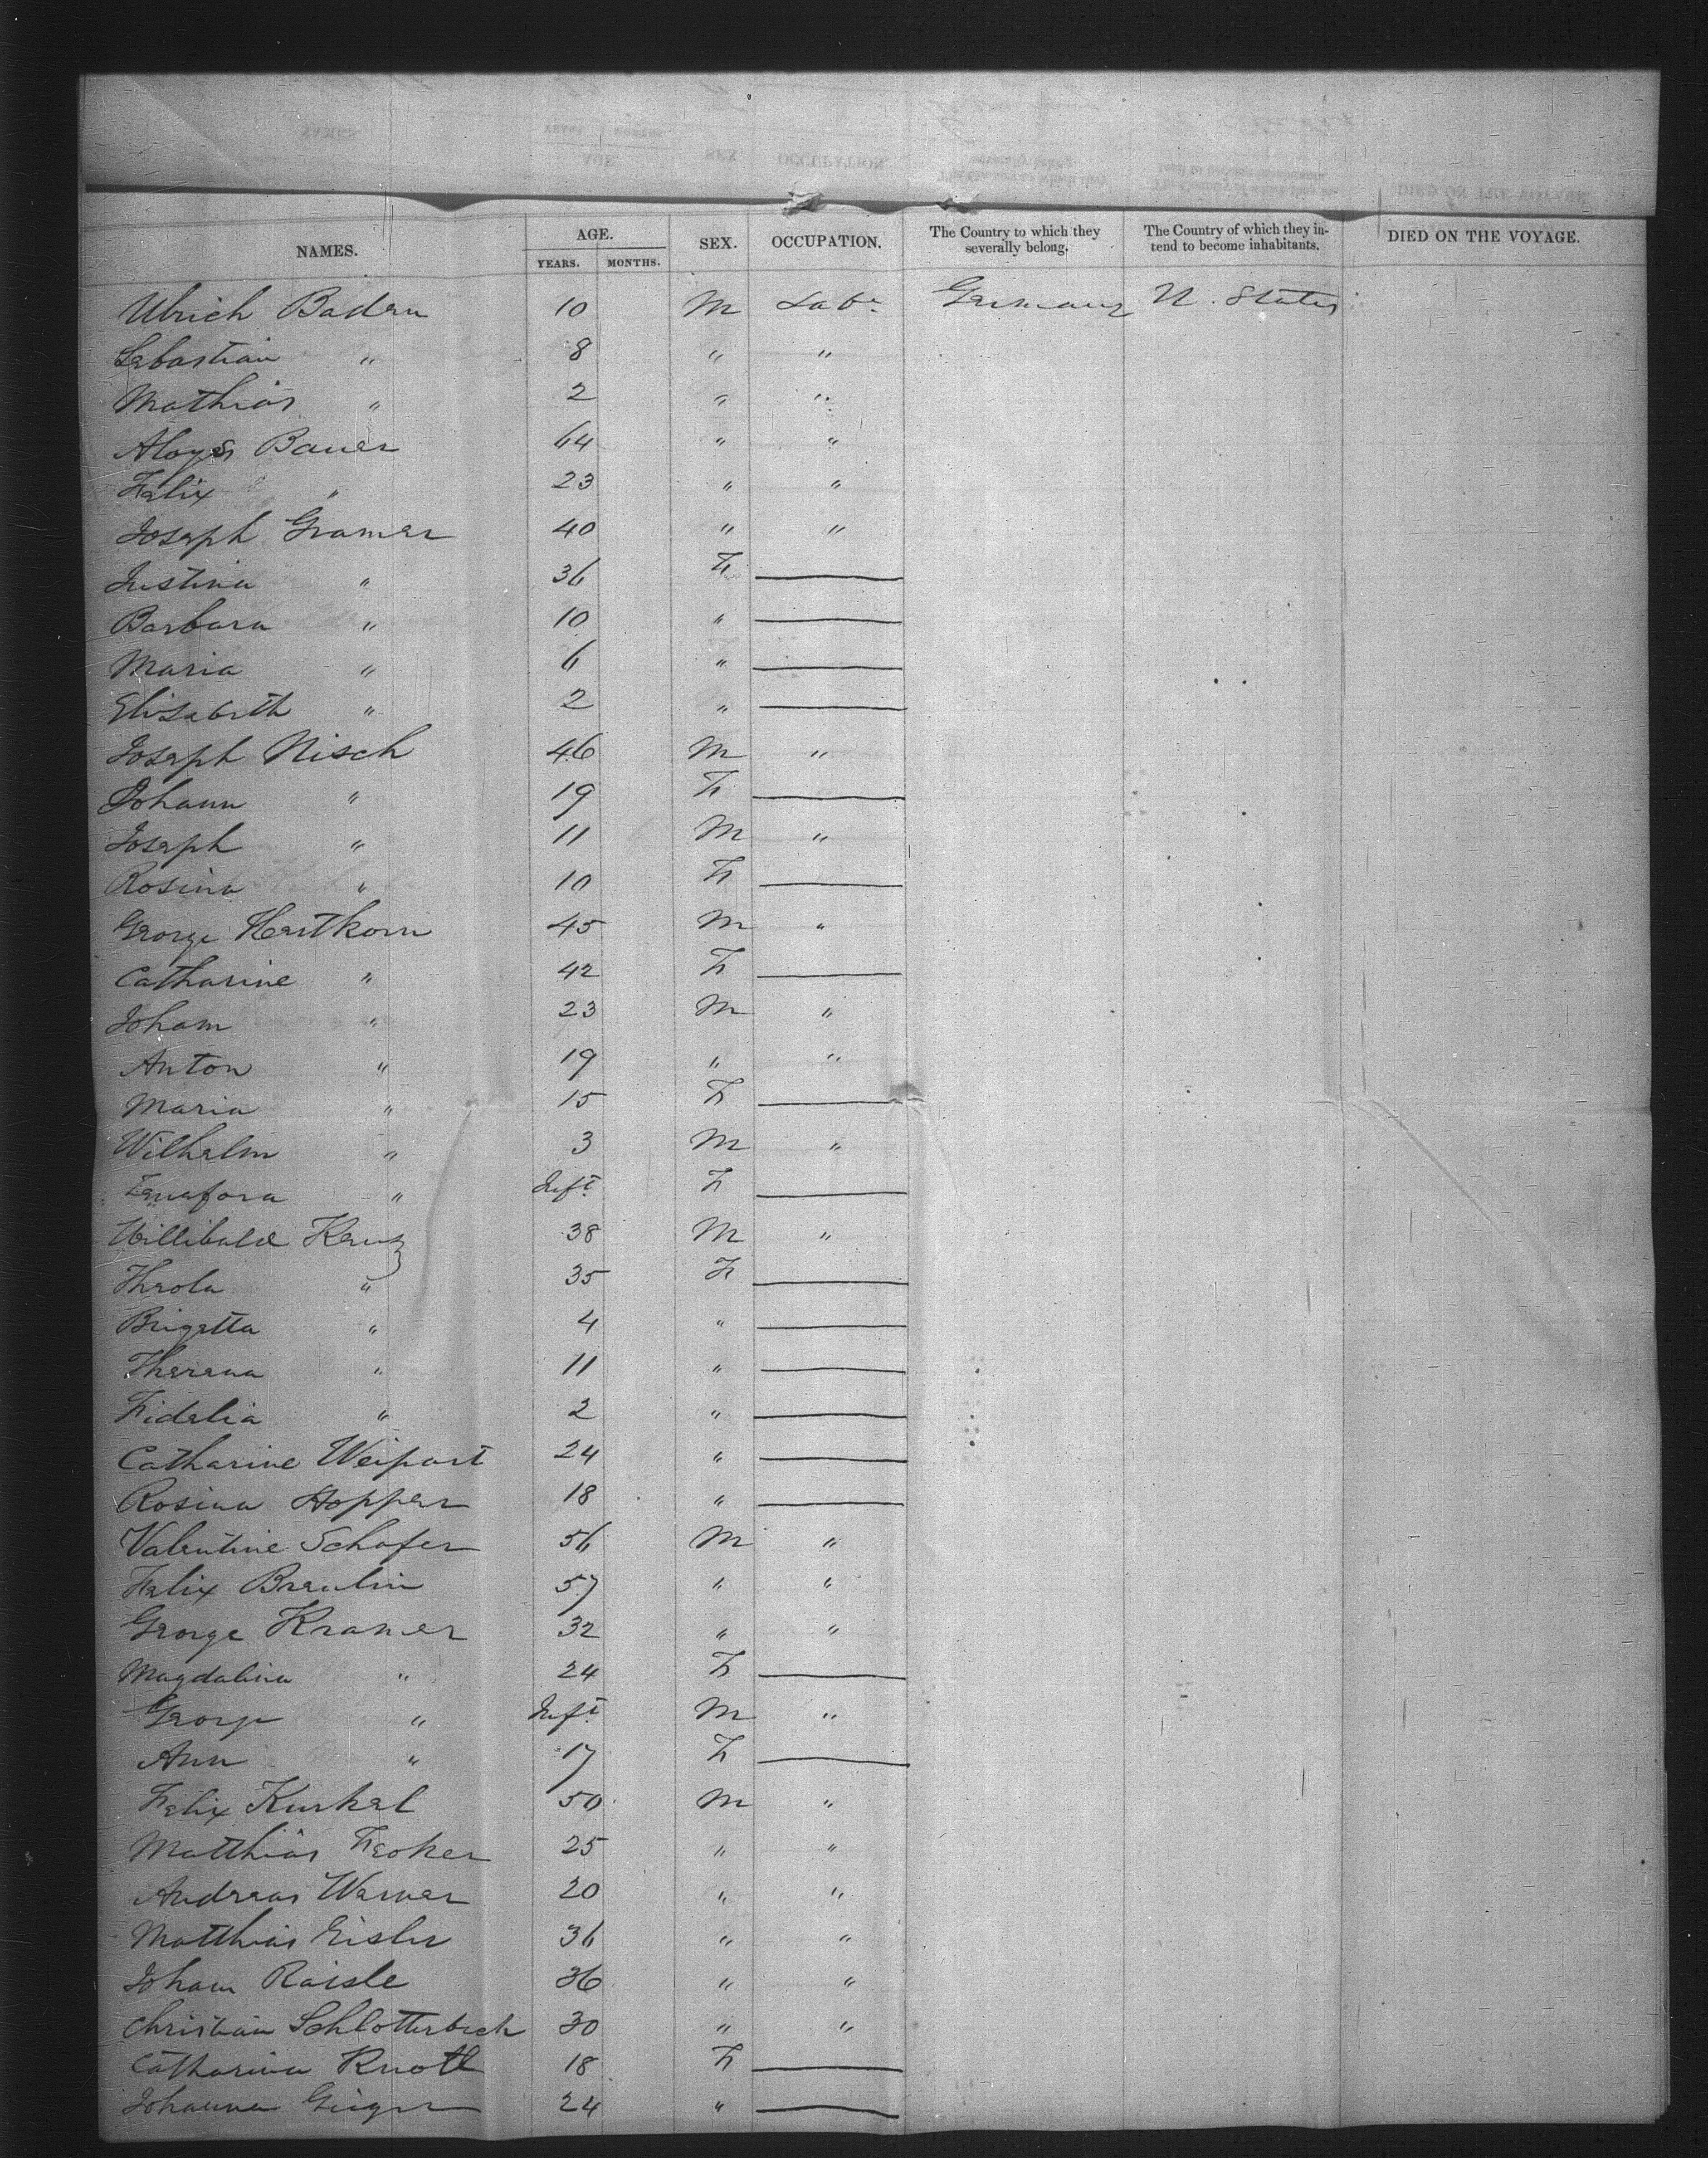 NAMES. AGE. YEARS. MONTHS. SEX. OCCUPATION. The Country to which they severally belong. The Country of which they intend to become inhabitants. DIED ON THE VOYAGE.
Ulrich Baden 10 M Labr Germany U. States
Sebastian " 8 " "
Mathias " 2 " "
Aloys Bauer 64 " "
Felix " 23 " "
Joseph Gramer 40 " "
Justina " 36 F —
Barbara " 10 " —
Maria " 6 " —
Elisabeth " 2 " —
Joseph Nisch 46 M "
Johann " 19 F —
Joseph " 11 M "
Rosina " 10 F —
George Hertkorn 45 M "
Catharine " 42 F —
Joham " 23 M "
Anton " 19 " "
Maria " 15 F —
Wilhelm " 3 M "
" Inft F —
Willibald 38 M "
Threla " 35 F —
Brigetta " 4 " —
Therena " 11 " —
Fidelia " 2 " —
Catharine Weipart 24 " —
Rosina Hopper 18 " —
Valentine Schafer 56 M "
Felix Breulin 57 " "
George Kramer 32 " "
Magdalina " 24 F —
George " Inft M "
Ann " 17 F —
Felix Kunkel 50 M "
Matthias 25 " "
Andreas Werner 20 " "
Matthias Eisler 36 " "
Joham Raisle 36 " "
Christian Schlotterbeck 30 " "
Catharina Knoll 18 F —
Johanna Geiger 24 " —